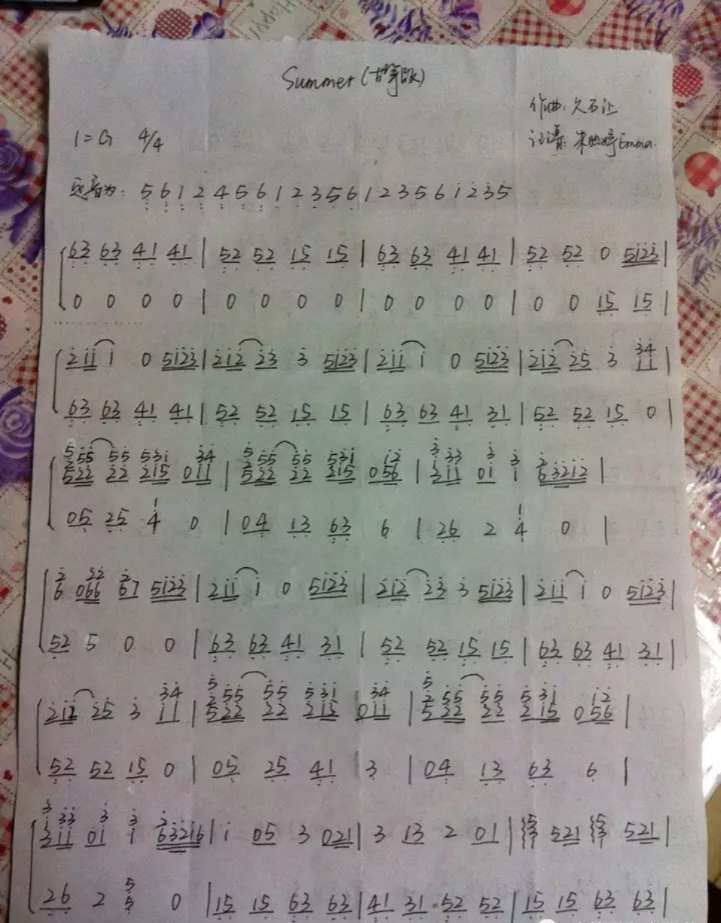 Summer (古筝版)
作曲: 久石让
1=G 4/4
Emma.
定音为: 5 6 1 2 4 5 6 1 2 3 5 6 1 2 3 5 6 1 2 3 5
63 63 41 41 | 52 52 15 15 | 63 63 41 41 | 52 52 0 5123 |
0 0 0 0 | 0 0 0 0 | 0 0 0 0 | 0 0 15 15 |
211 1 0 5123 | 212 23 3 5123 | 211 1 0 5123 | 212 25 3 34 11
63 63 41 41 | 52 52 15 15 | 63 63 41 31 | 52 52 15 0 |
555 55 531 034 | 555 55 531 012 | 333 03 3
522 22 215 011 | 522 22 215 056 | 311 01 1 63212 |
05 25 4 0 | 04 13 63 6 | 26 2 4 0 |
6 066 67 5123 | 211 1 0 5123 | 212 23 3 5123 | 211 1 0 5123 |
52 5 0 0 | 63 63 41 31 | 52 52 15 15 | 63 63 41 31 |
212 25 3 34 11 | 522 22 215 011 | 522 22 215 056 |
52 52 15 0 | 05 25 41 3 | 04 13 63 6 |
311 01 1 63216 | 1 05 3 021 | 3 13 2 01 | 521 521 |
26 2 5 0 | 15 15 63 63 | 41 31 52 52 | 15 15 63 63 |